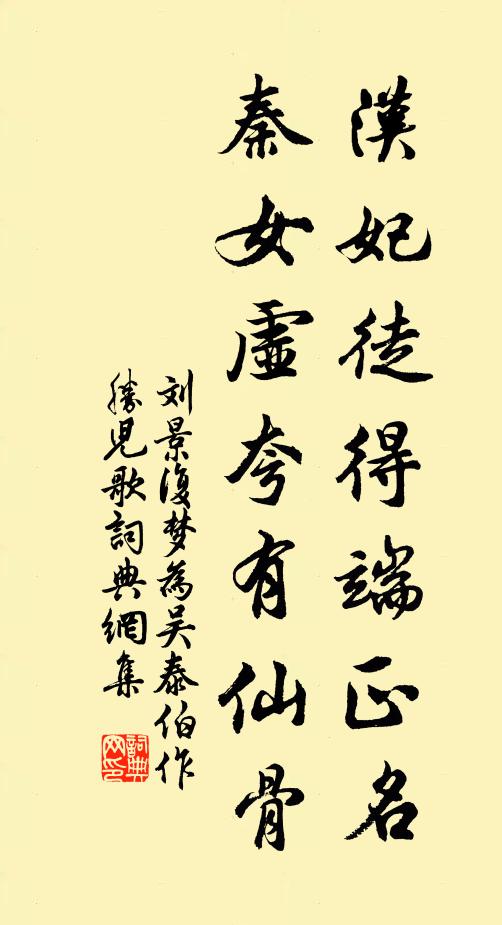 漢妃徒得端正名
秦女虛夸有仙骨
刘景復梦為吴泰伯作
勝児歌詞典網集
詞典网印